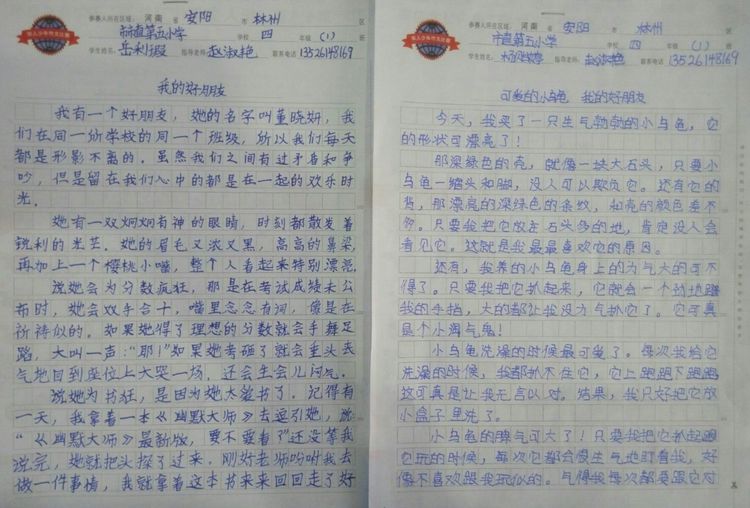 参赛人所在区域：河南省 安阳 市 林州 区
市直第五小学 学校 四 年级（1）
学生姓名：岳利 指导老师：赵淑艳 联系电话 13526148169
我的好朋友
我有一个好朋友，她的名字叫董晓妍，我
们在同一所学校的同一个班级，所以我们每天
都是形影不离的。虽然我们之间有过矛盾和争
吵，但是留在我们心中的都是在一起的欢乐时
光。
她有一双炯炯有神的眼睛，时刻都散发着
锐利的光芒。她的眉毛又浓又黑，高高的鼻梁，
再加上一个樱桃小嘴，整个人看起来特别漂亮。
说她会为分数疯狂，那是在考试成绩未公
布时，她会双手合十，嘴里念念有词，像是在
祈祷似的。如果她得了理想的分数就会手舞足
蹈，大叫一声：“耶！”如果她考砸了就会垂头丧
气地回到座位上大哭一场，还会生会儿闷气。
说她为书狂，是因为她太爱书了。记得有
一天，我拿着一本《幽默大师》去逗引她，说
“《幽默大师》最新版，要不要看？”还没等我
说完，她就把头探了过来，刚好老师吩咐我去
做一件事情，我就拿着这本书来来回回走了好
参赛人所在区域：河南省 安阳 市 林州 区
市直第五小学 学校 四 年级（1）
学生姓名： 指导老师：赵淑艳 联系电话 13526148169
可爱的小乌龟 我的好朋友
今天，我买了一只生气勃勃的小乌龟，它
的形状可漂亮了！
那深绿色的壳，就像一块大石头，只要小
乌龟一缩头和脚，没人可以欺负它。还有它的
背，那漂亮的深绿色的条纹，和壳的颜色差不
多。只要我把它放在石头多的地，肯定没人会
看见它。这就是我最最喜欢它的原因。
还有，我养的小乌龟身上的力气大的可不
得了。只要我把它抓起来，它就会一个劲地蹬
我的手指，大的都让我没力气抓它了。它可真
是个小淘气鬼！
小乌龟洗澡的时候最可爱了。每次我给它
洗澡的时候，我都抓不住它，它上跑跑下跑跑，
这可真是让我无言以对。结果，我只好把它放
小盒子里洗了。
小乌龟的脾气可大了！只要我把它抓起跟
它玩的时候，每次它都会傻生气地盯着我，好
像不喜欢跟我玩似的。气得我每次都要跟它对